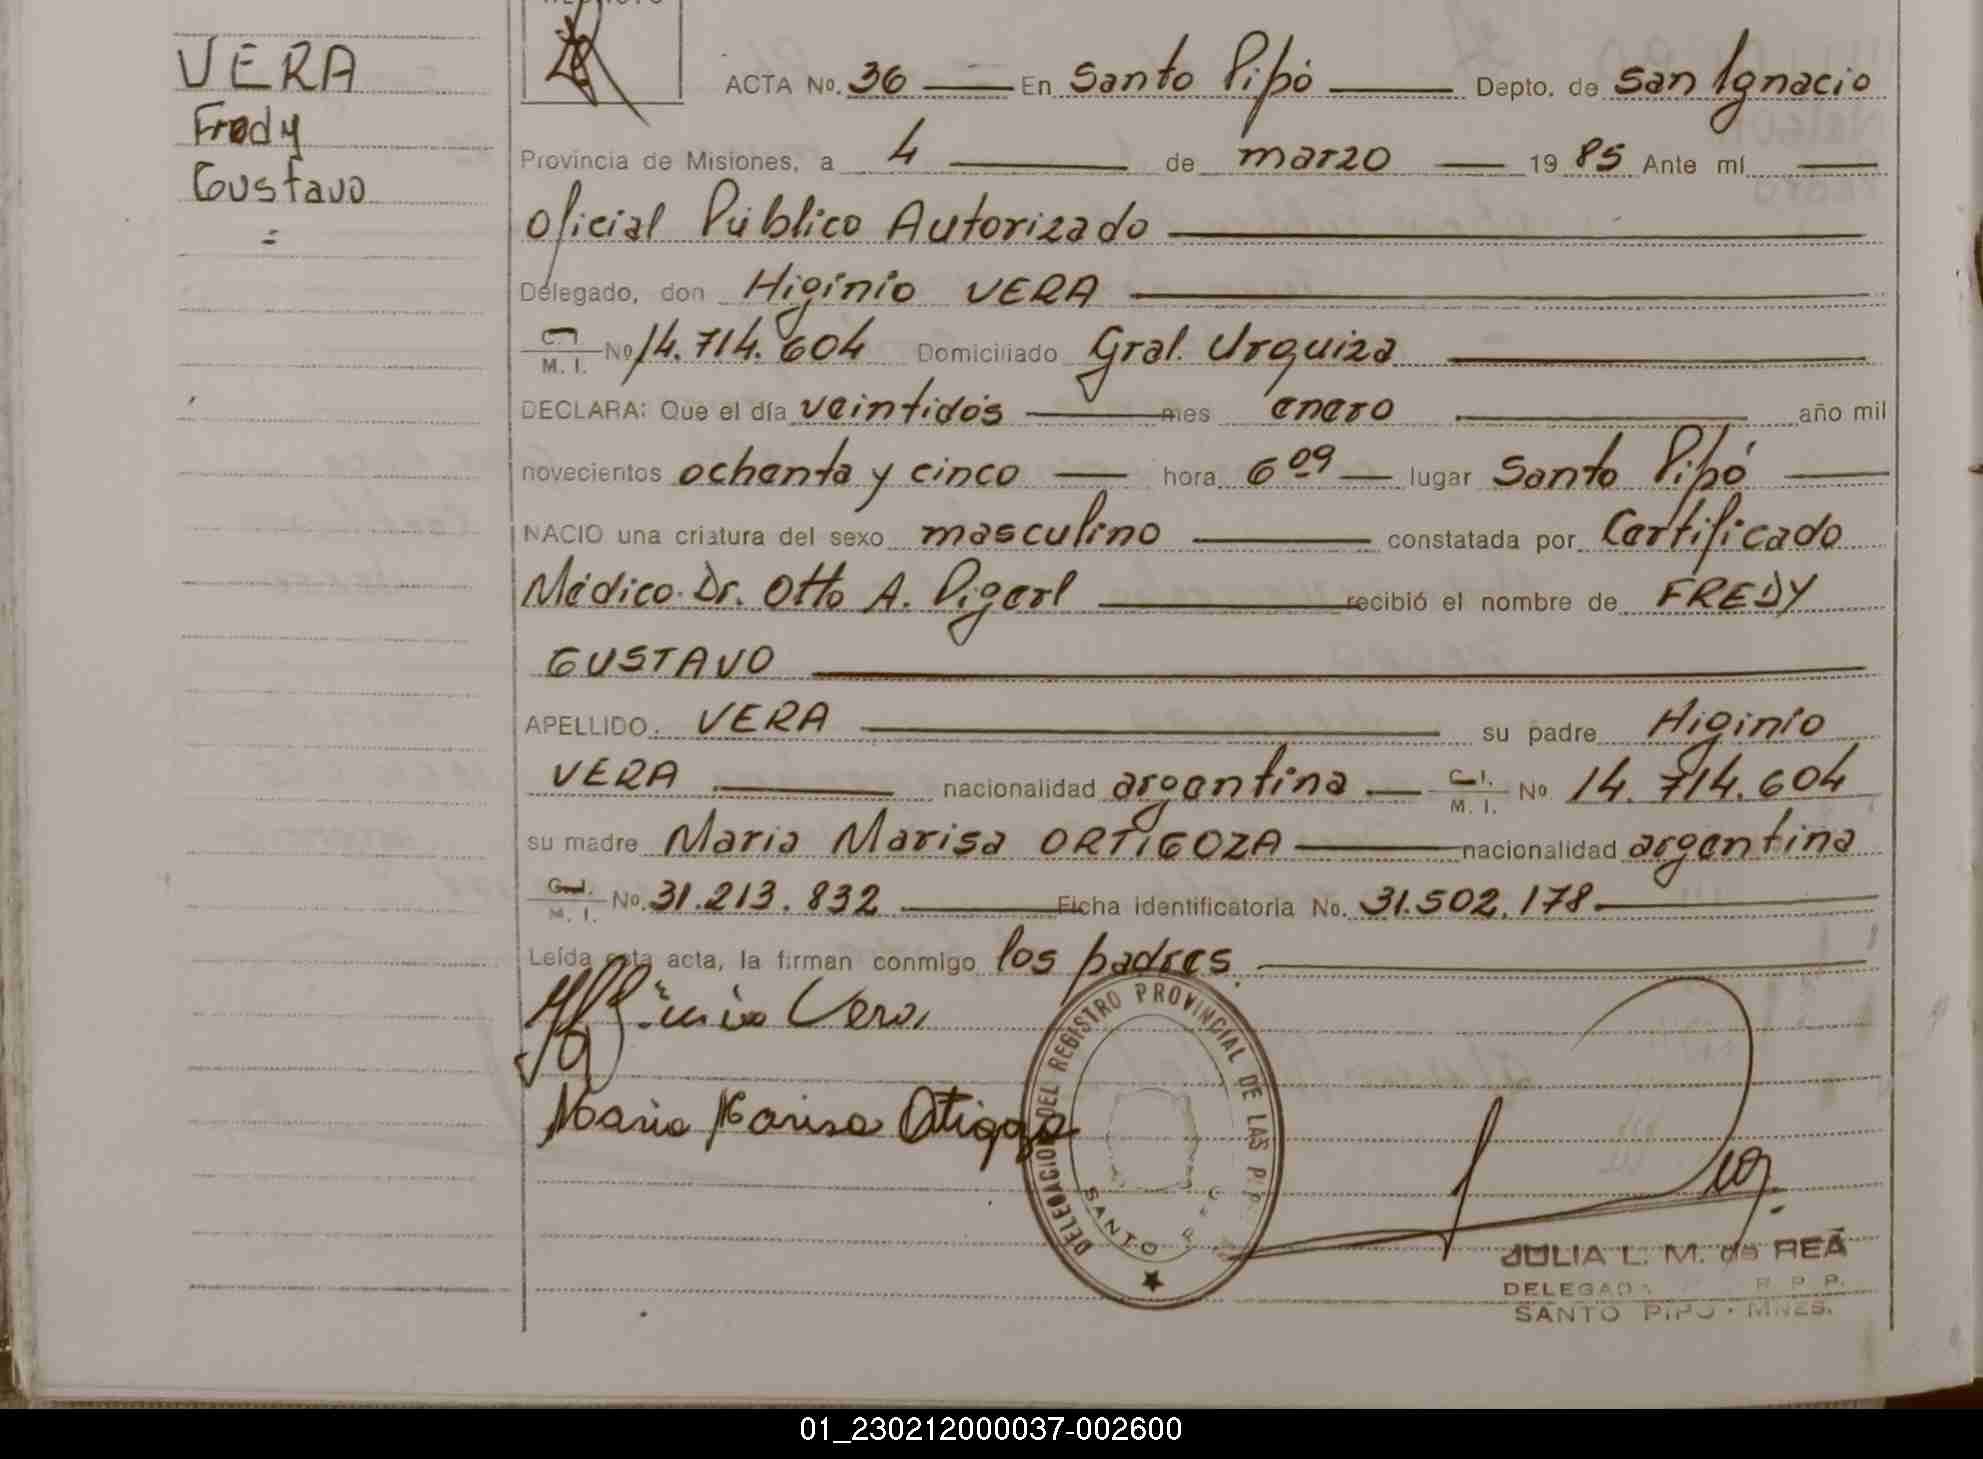 VERA
Fredy
Gustavo
=
ACTA No. 36 En Santo Pipó Depto. de San Ignacio
Provincia de Misiones, a 4 de marzo 19 85 Ante mí
Oficial Público Autorizado
Delegado, don Higinio VERA
C. I. M. I. No 14.714.604 Domiciliado Gral. Urquiza
DECLARA: Que el día veintidós mes enero año mil
novecientos ochenta y cinco hora 6 09 lugar Santo Pipó
NACIO una criatura del sexo masculino constatada por Certificado
Médico. Dr. Otto A. Pigerl recibió el nombre de FREDY
GUSTAVO
APELLIDO VERA su padre Higinio
VERA nacionalidad argentina C. I. M. I. No. 14.714.604
su madre Maria Marisa ORTIGOZA nacionalidad argentina
M. I. No. 31.213.832 Ficha identificatoria No. 31.502.178
Leída esta acta, la firman conmigo los padres.
Higinio Vera
Maria Marisa Ortigoza
DELEGACION DEL REGISTRO PROVINCIAL DE LAS P.P.
SANTO
JULIA L. M. de REA
DELEGADA R. P. P.
SANTO PIPO - MNES.
01_230212000037-002600